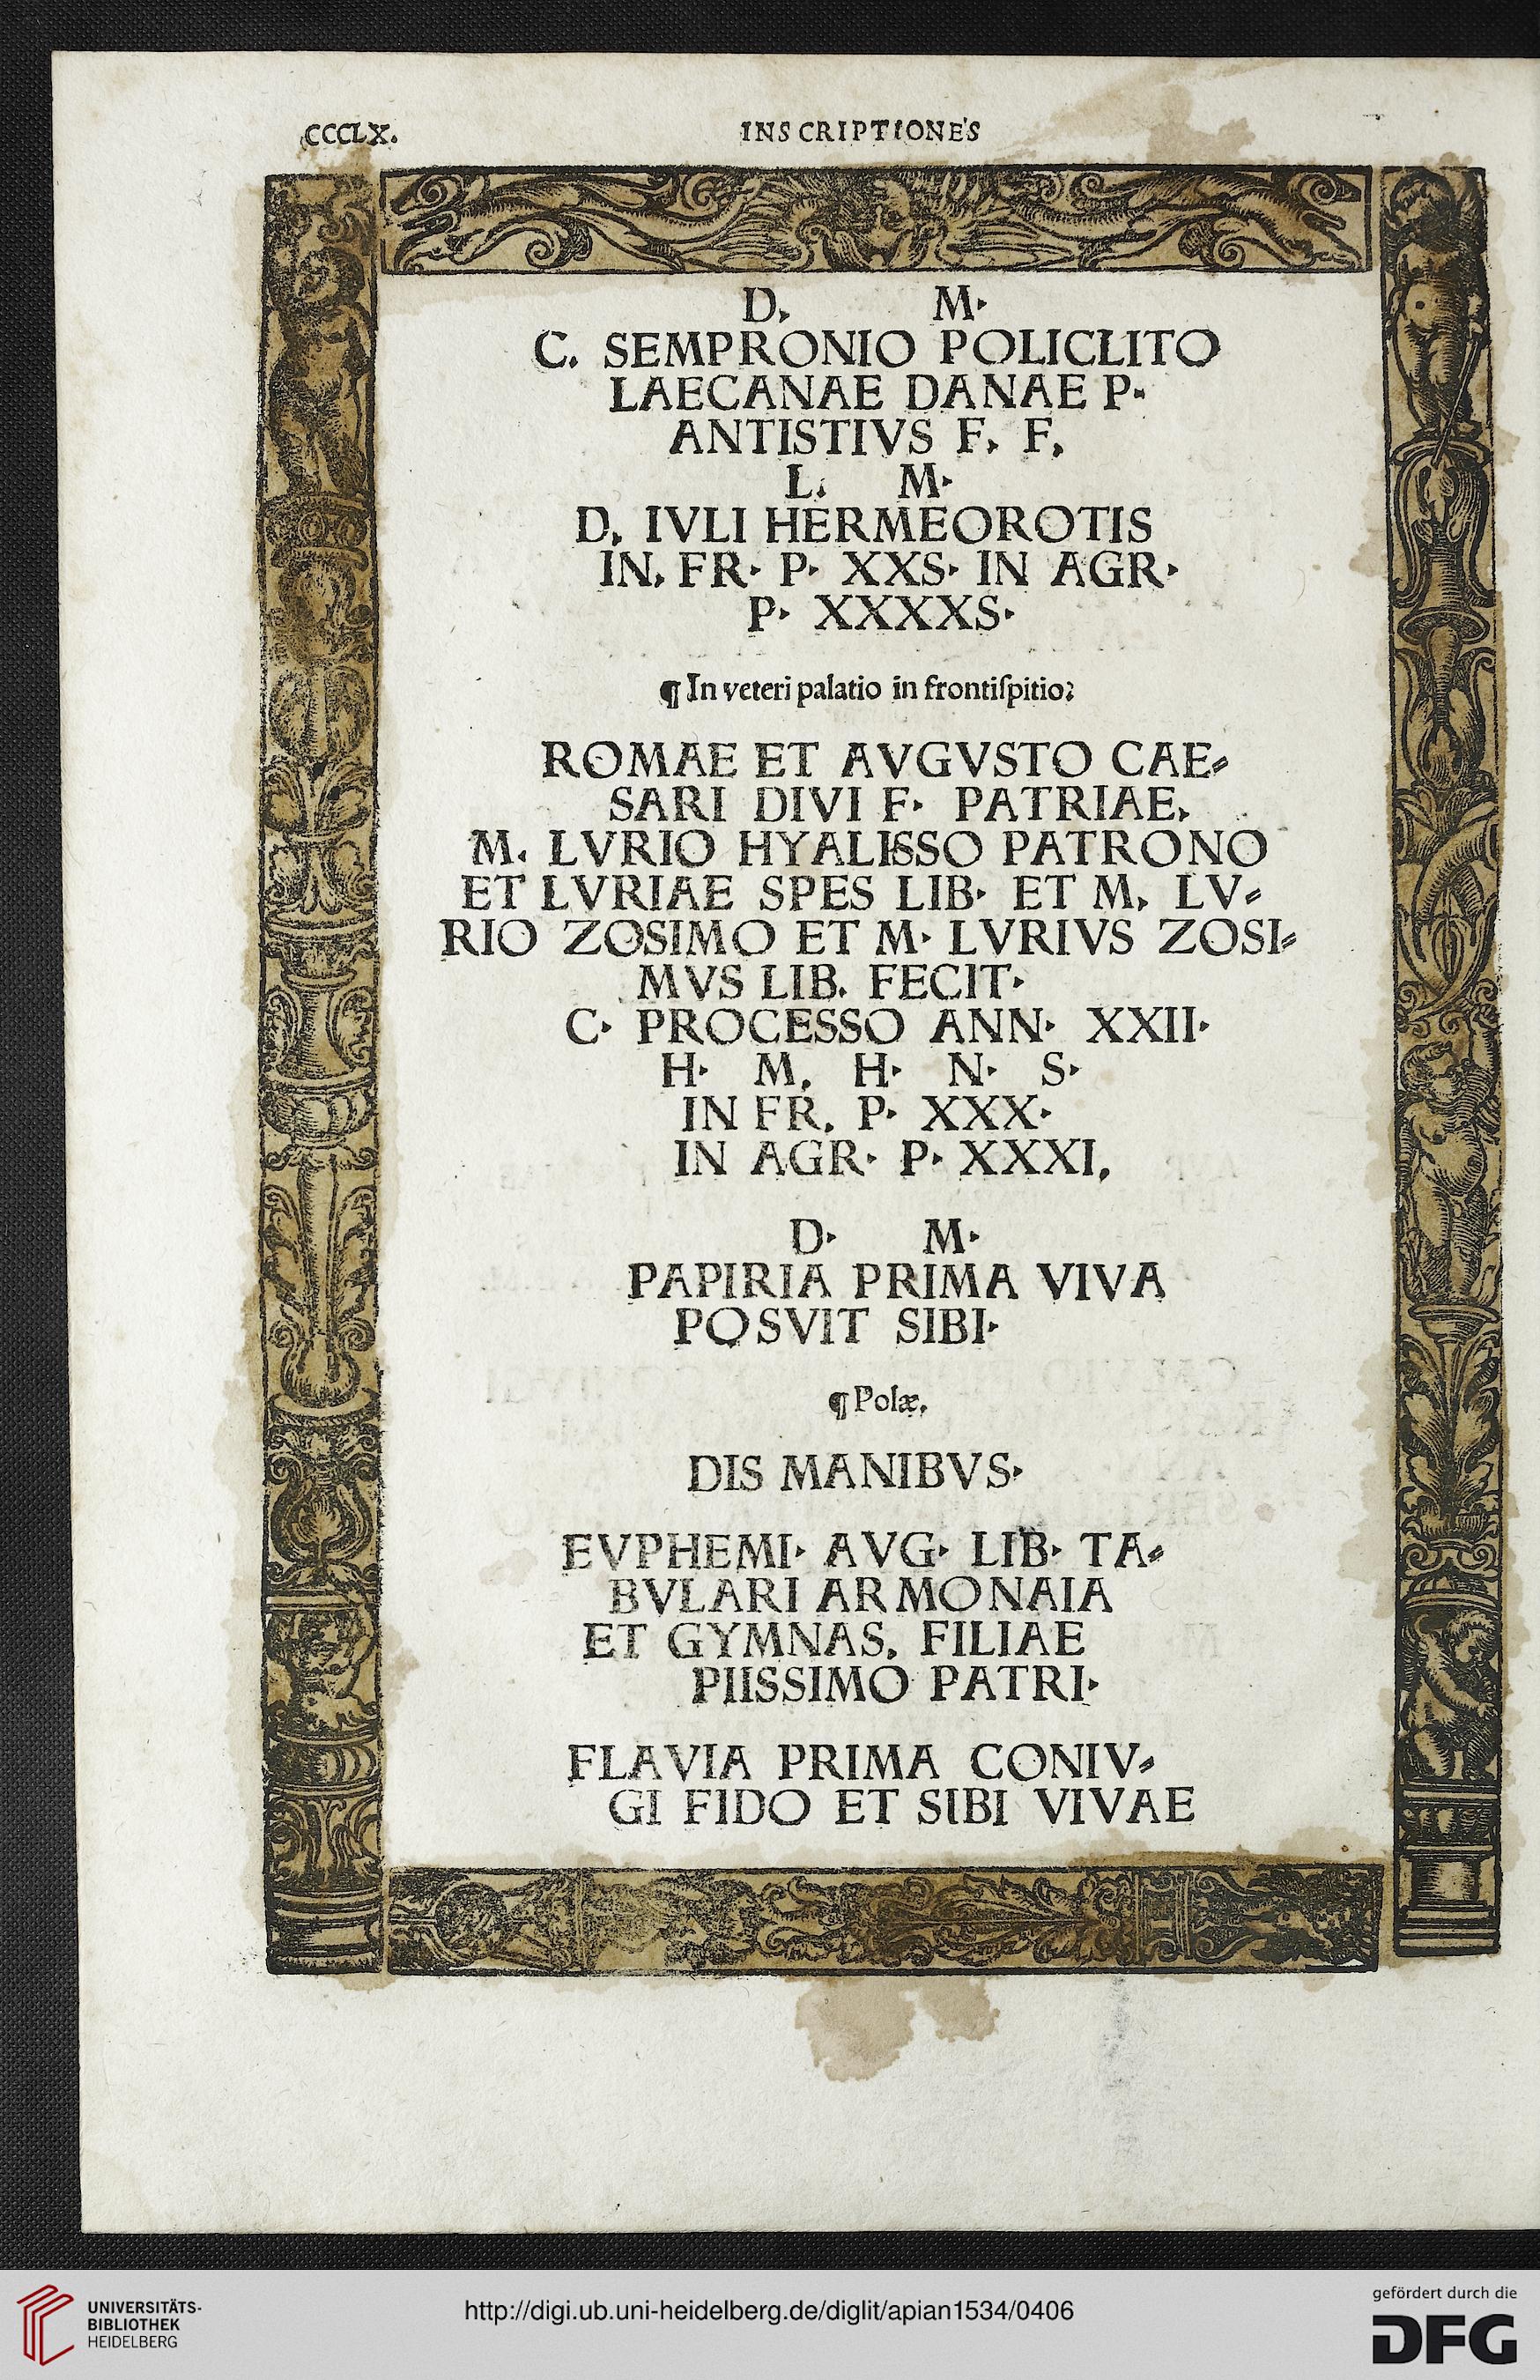 CCCLX. INSCRIPTIONES
D. M·
C. SEMPRONIO POLICLITO
LAECANAE DANAE P·
ANTISTIVS F. F.
L. M·
D. IVLI HERMEOROTIS
IN. FR· P· XXS· IN AGR·
P· XXXXS·
¶ In veteri palatio in frontiſpitio:
ROMAE ET AVGVSTO CAE⸗
SARI DIVI F· PATRIAE.
M. LVRIO HYALISSO PATRONO
ET LVRIAE SPES LIB· ET M. LV⸗
RIO ZOSIMO ET M· LVRIVS ZOSI⸗
MVS LIB. FECIT·
C· PROCESSO ANN· XXII·
H· M. H· N· S·
IN FR. P· XXX·
IN AGR· P· XXXI.
D· M·
PAPIRIA PRIMA VIVA
POSVIT SIBI·
¶ Polæ.
DIS MANIBVS·
EVPHEMI· AVG· LIB· TA⸗
BVLARI ARMONAIA
ET GYMNAS. FILIAE
PIISSIMO PATRI·
FLAVIA PRIMA CONIV⸗
GI FIDO ET SIBI VIVAE
UNIVERSITÄTS-
BIBLIOTHEK
HEIDELBERG
http://digi.ub.uni-heidelberg.de/diglit/apian1534/0406
gefördert durch die
DFG